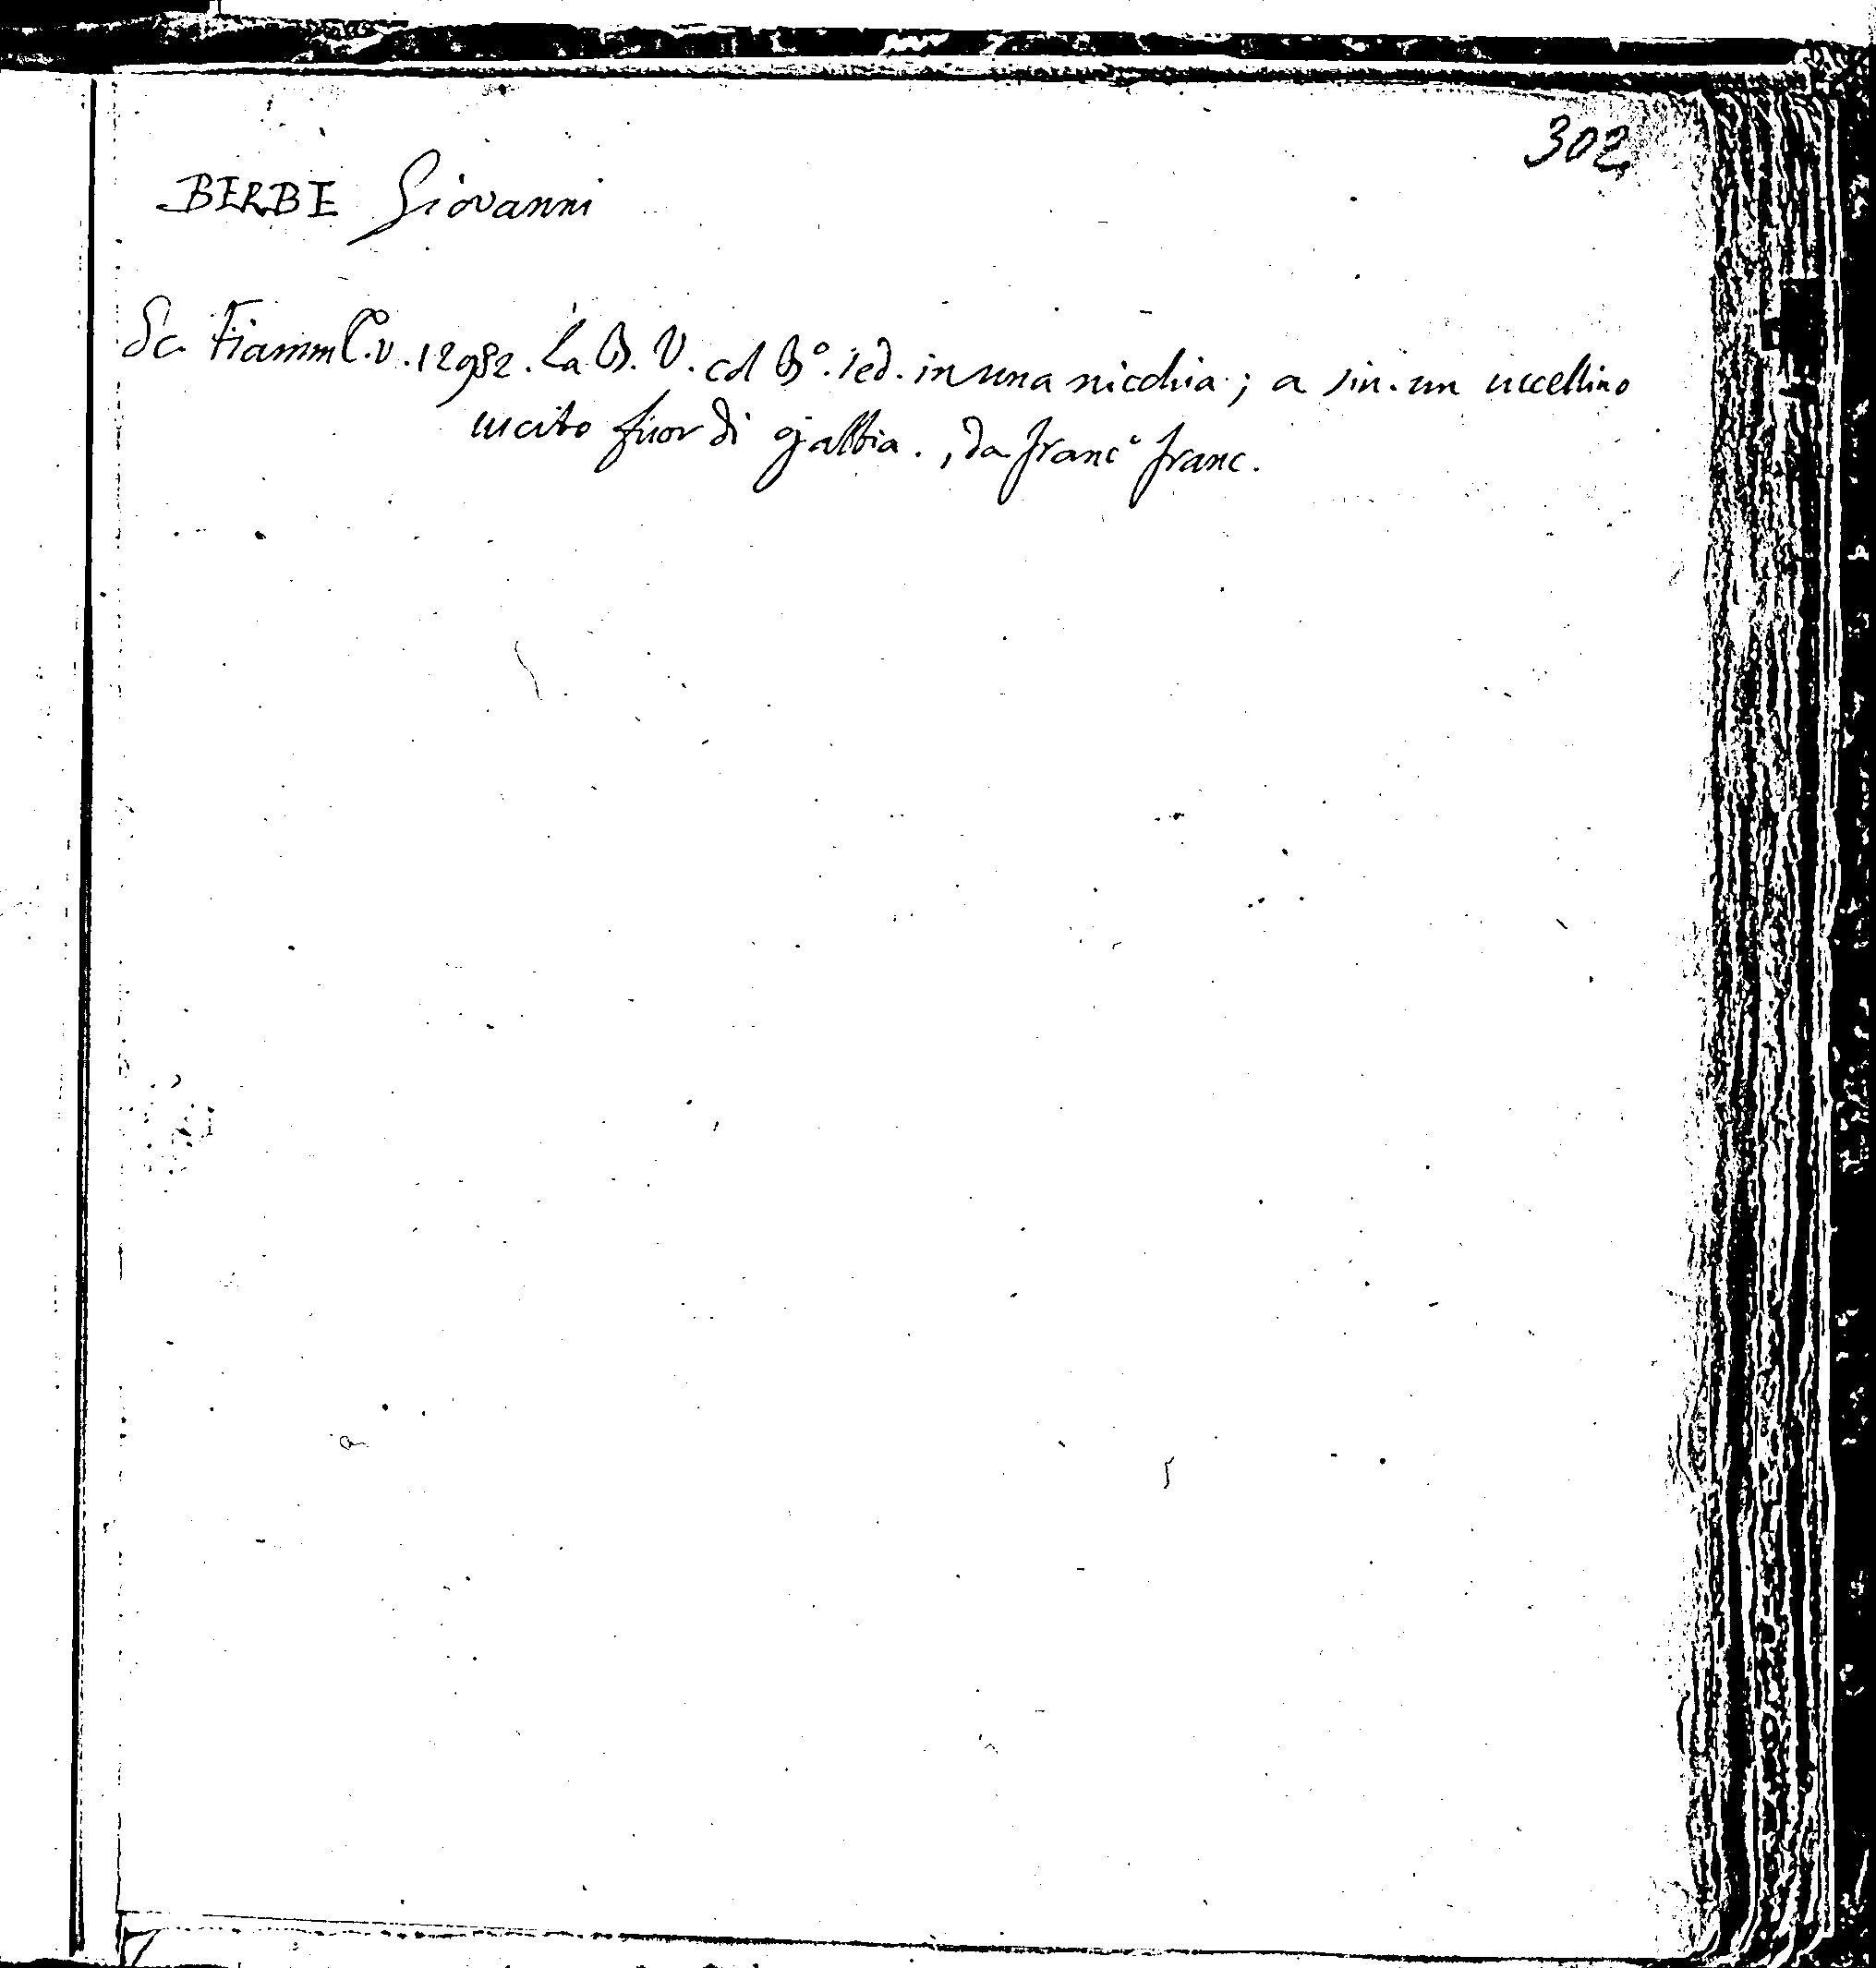 302
BERBE Giovanni
Sc. Fiamm C.v. 12952. La B. V. col B°. sed. in una nicchia; a sin. un uccellino
uscito fuor di gabbia., da Franc° Franc.